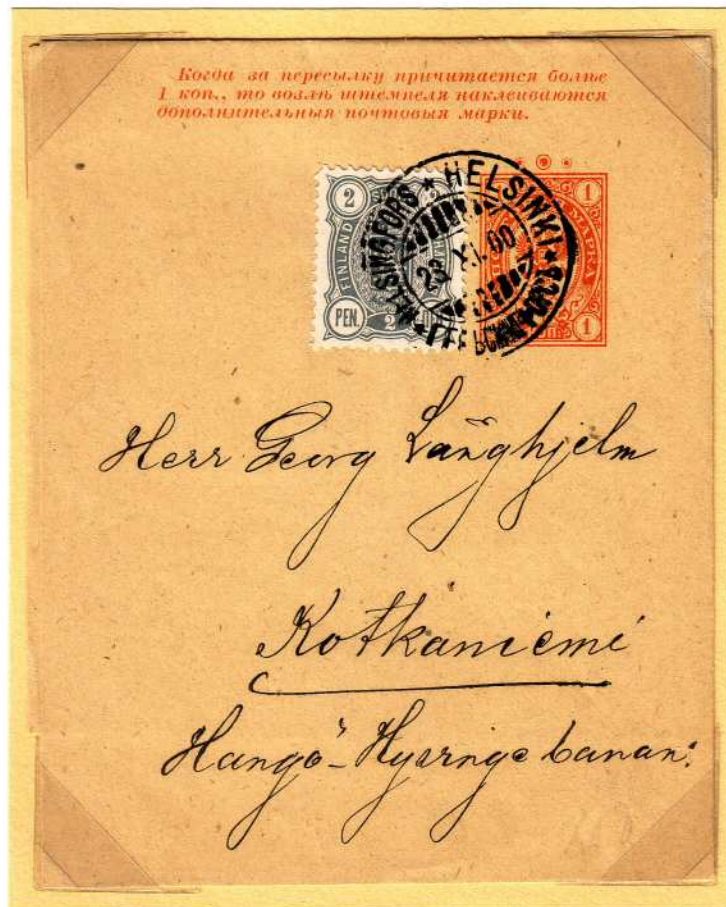 Когда за пересылку причитается болѣе
1 коп., то возлѣ штемпеля наклеиваются
дополнительныя почтовыя марки.
2
FINLAND
PEN.
2
HELSINGFORS * HELSINKI *
23 XI.00
1
МАРКА
1
Herr Georg Långhjelm
Kotkaniemi
Hangö-Hyvinge banan.